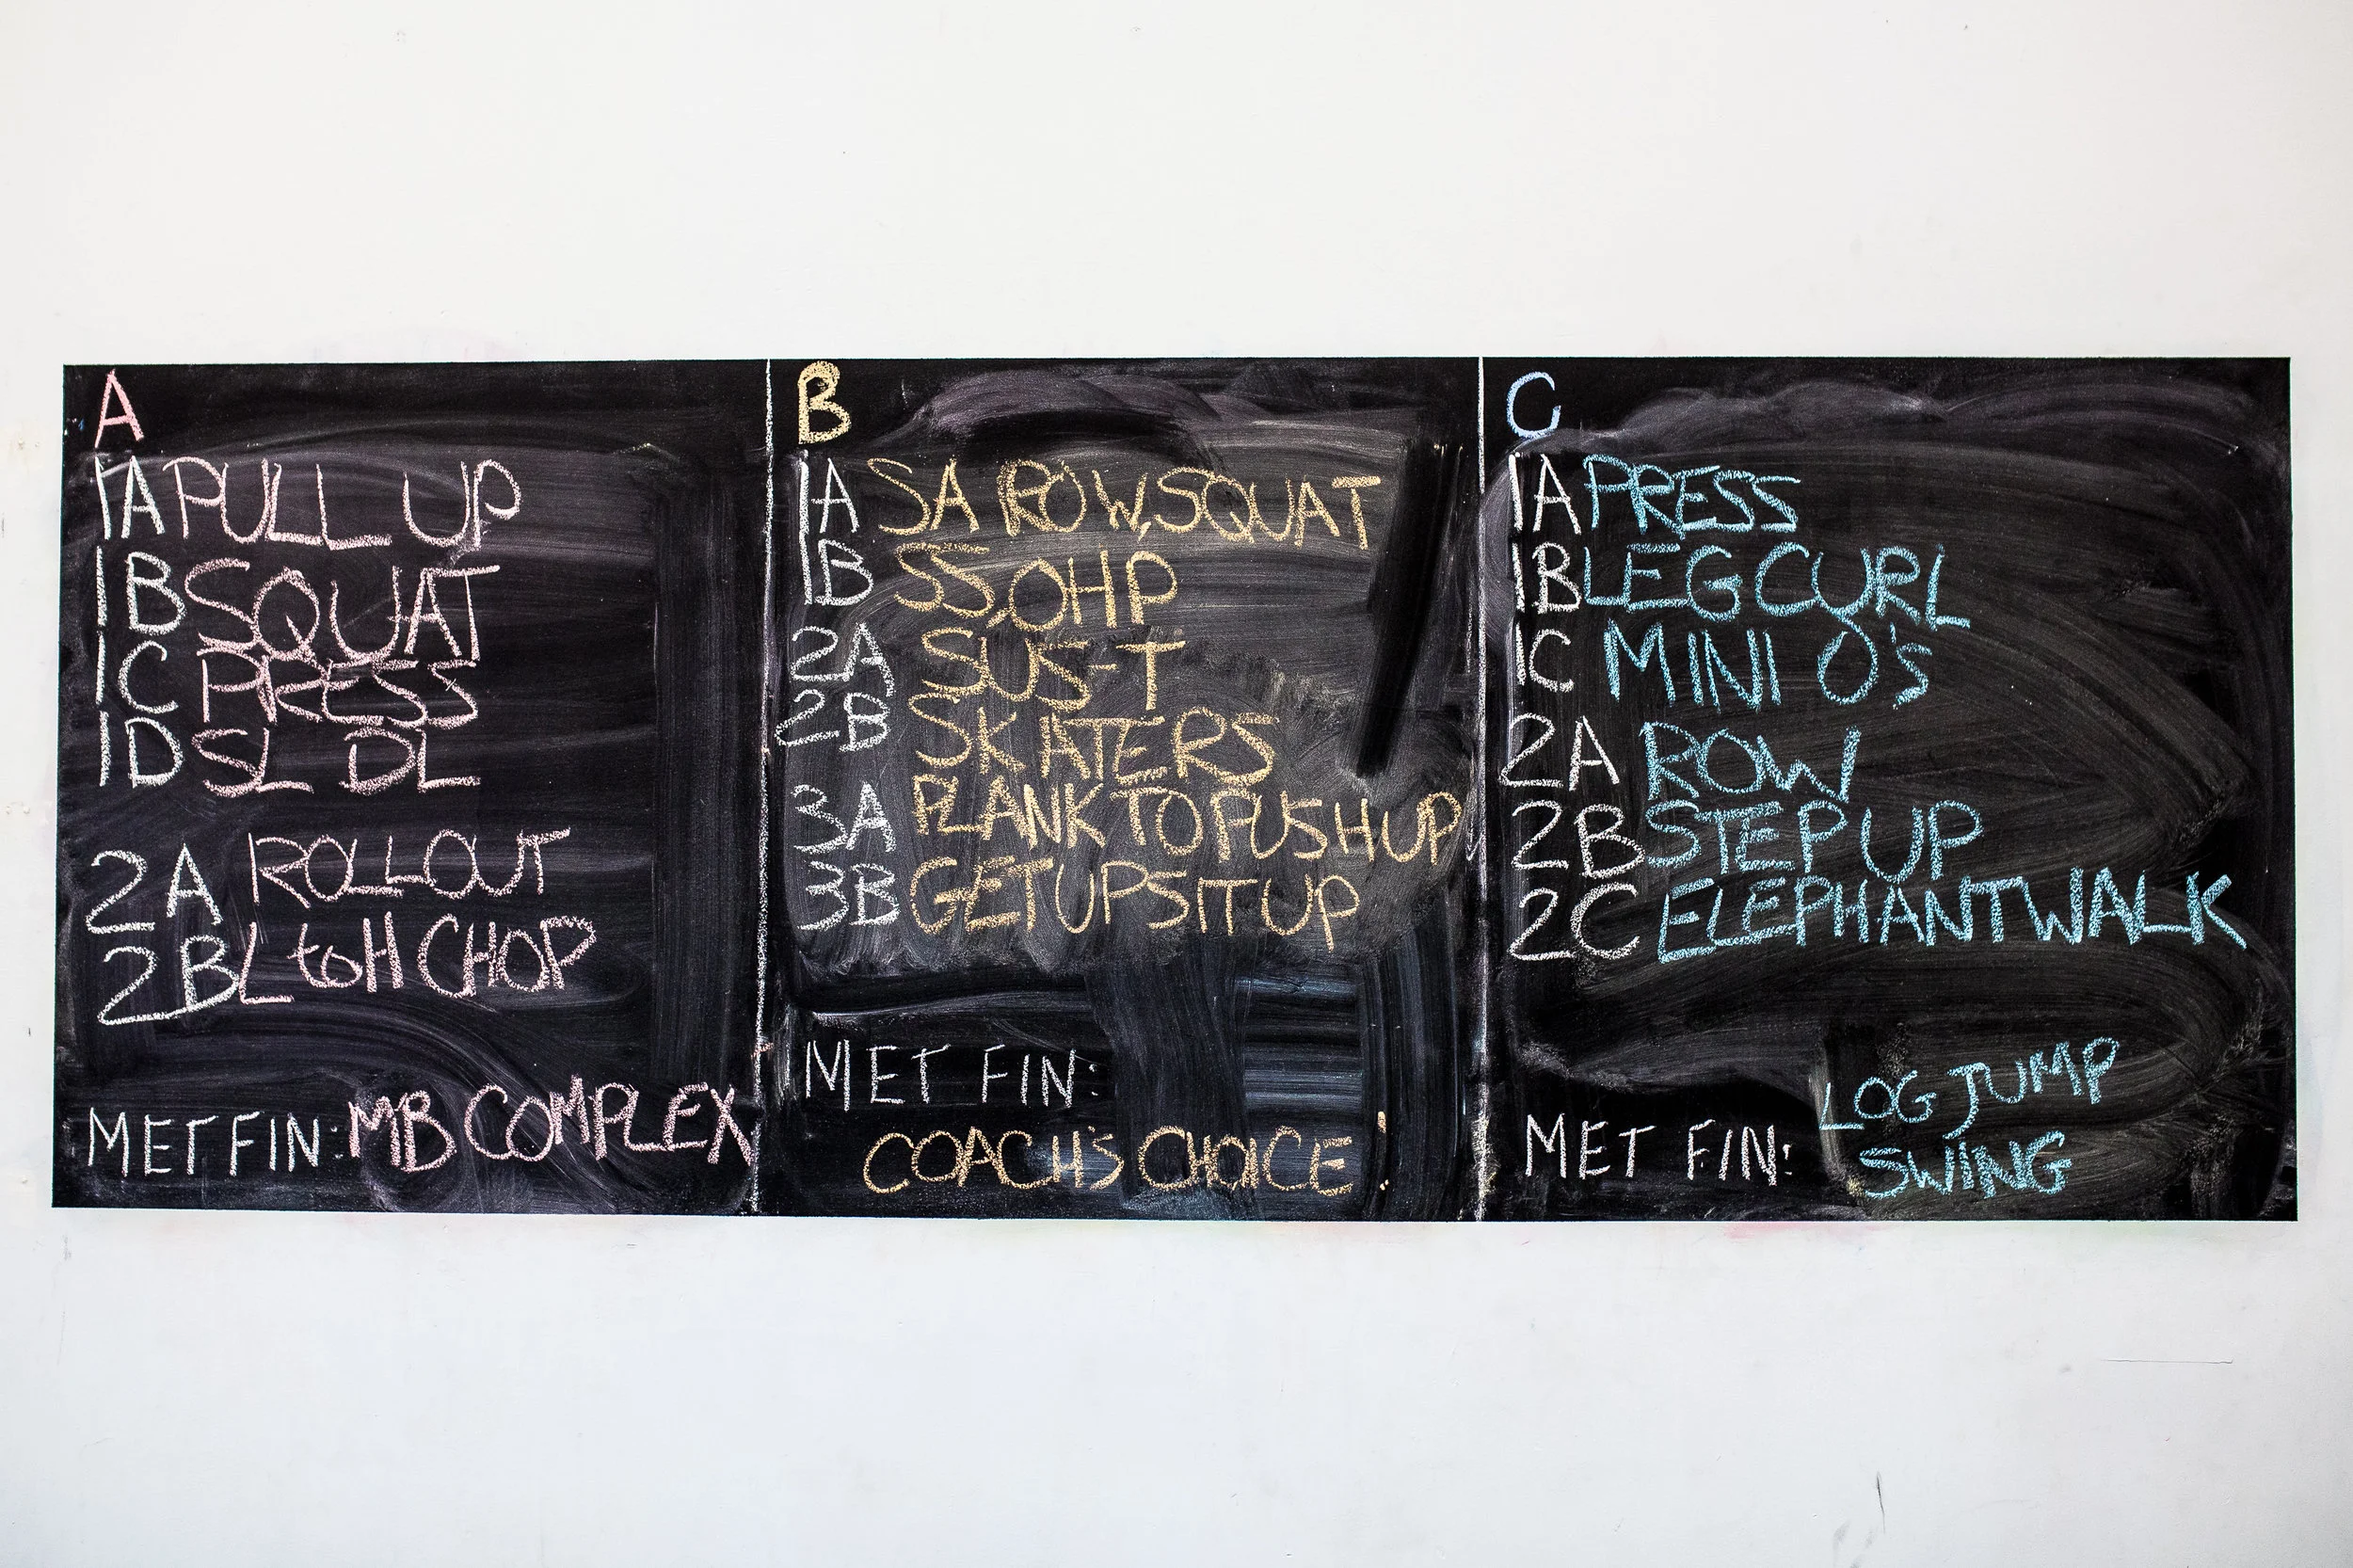 A
1A PULL UP
1B SQUAT
1C PRESS
1D SL DL
2A ROLLOUT
2B L to H CHOP
MET FIN: MB COMPLEX
B
1A SA ROW, SQUAT
1B SS, OHP
2A SUS-T
2B SKATERS
3A PLANK TO PUSH UP
3B GET UP SIT UP
MET FIN:
COACH'S CHOICE!
C
1A PRESS
1B LEG CURL
1C MINI O's
2A ROW
2B STEP UP
2C ELEPHANT WALK
MET FIN: LOG JUMP
SWING